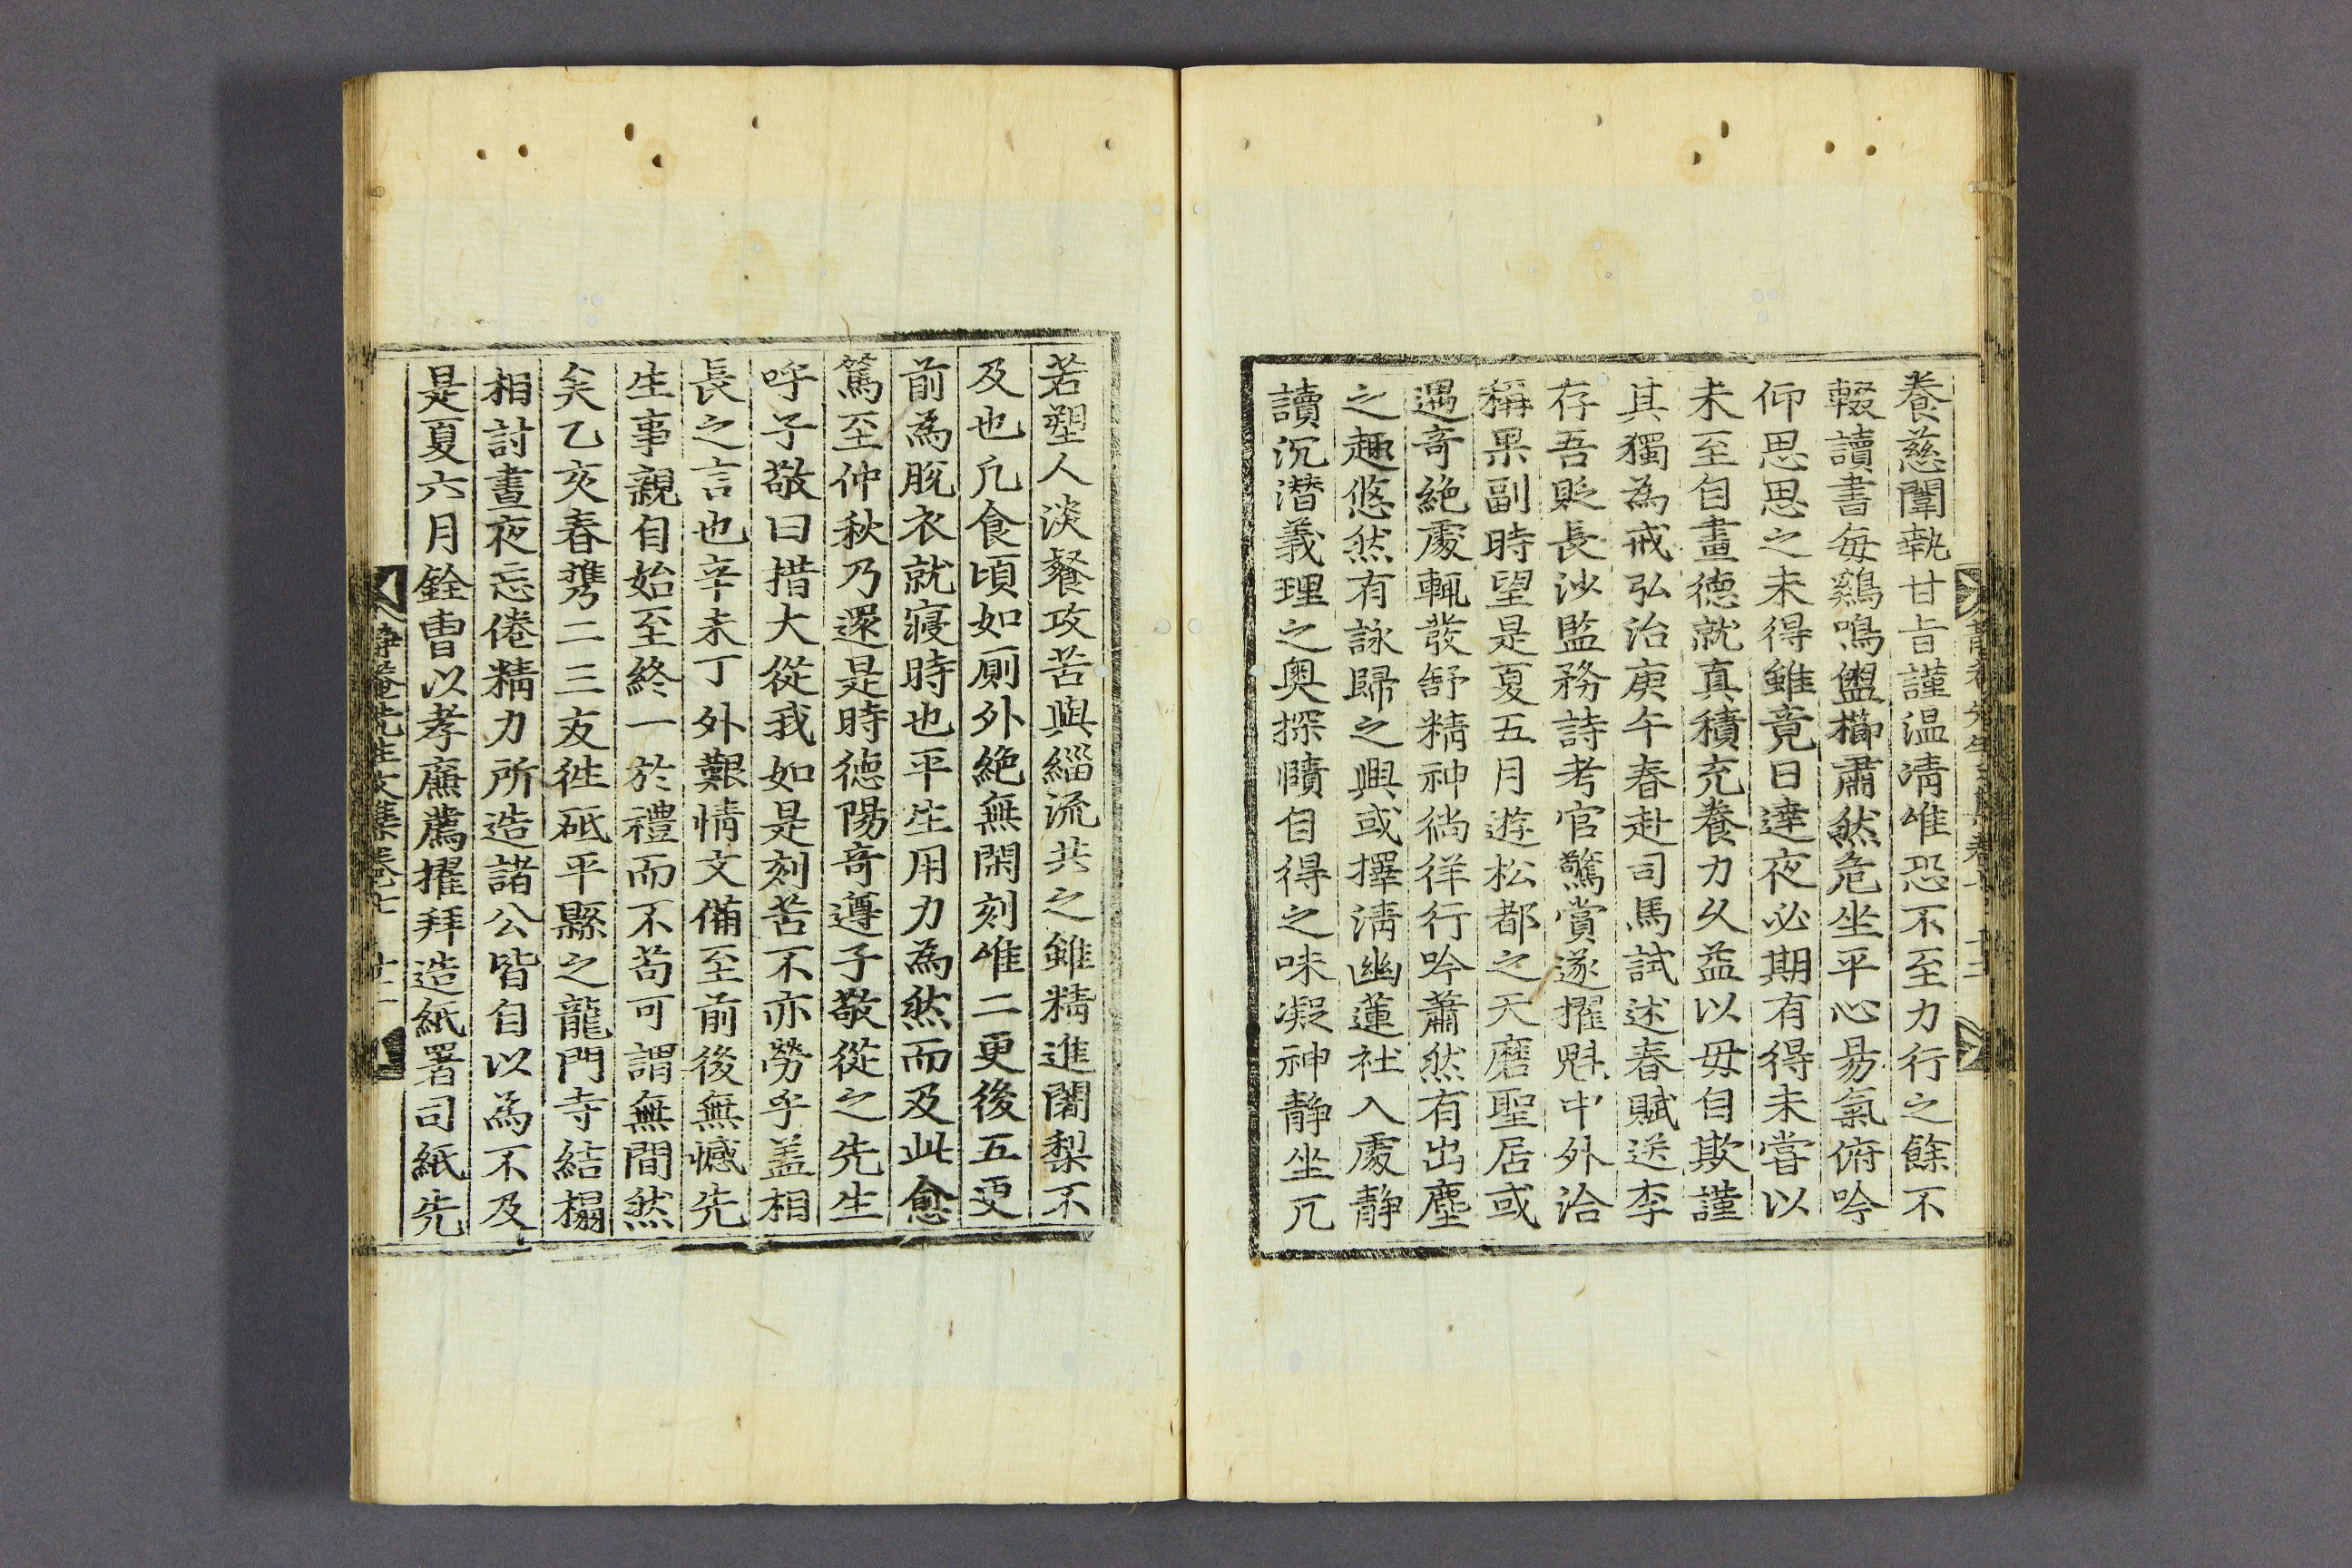 養慈闈執甘旨謹温凊惟恐不至力行之餘不
輟讀書每鷄鳴盥櫛肅然危坐平心易氣俯吟
仰思思之未得雖竟日達夜必期有得未嘗以
未至自畫德就真積充養力久益以毋自欺謹
其獨為戒弘治庚午春赴司馬試述春賦送李
存吾貶長沙監務詩考官驚賞遂擢魁中外洽
稱果副時望是夏五月遊松都之天磨聖居或
遇奇絶處輒發舒精神徜徉行吟蕭然有出塵
之趣悠然有詠歸之興或擇淸幽蓮社入處静
讀沉潜義理之奥探賾自得之味凝神静坐兀
若塑人淡餐攻苦與緇流共之雖精進闍梨不
及也凡食頃如厠外絶無閑刻惟二更後五更
前為脫衣就寢時也平生用力為然而及此愈
篤至仲秋乃還是時德陽奇遵子敬從之先生
呼子敬曰措大從我如是刻苦不亦勞乎盖相
長之言也辛未丁外艱情文備至前後無憾先
生事親自始至終一於禮而不苟可謂無間然
矣乙亥春携二三友徃砥平縣之龍門寺結榻
相討晝夜忘倦精力所造諸公皆自以為不及
是夏六月銓曹以孝廉薦擢拜造紙署司紙先
静菴先生文集卷之